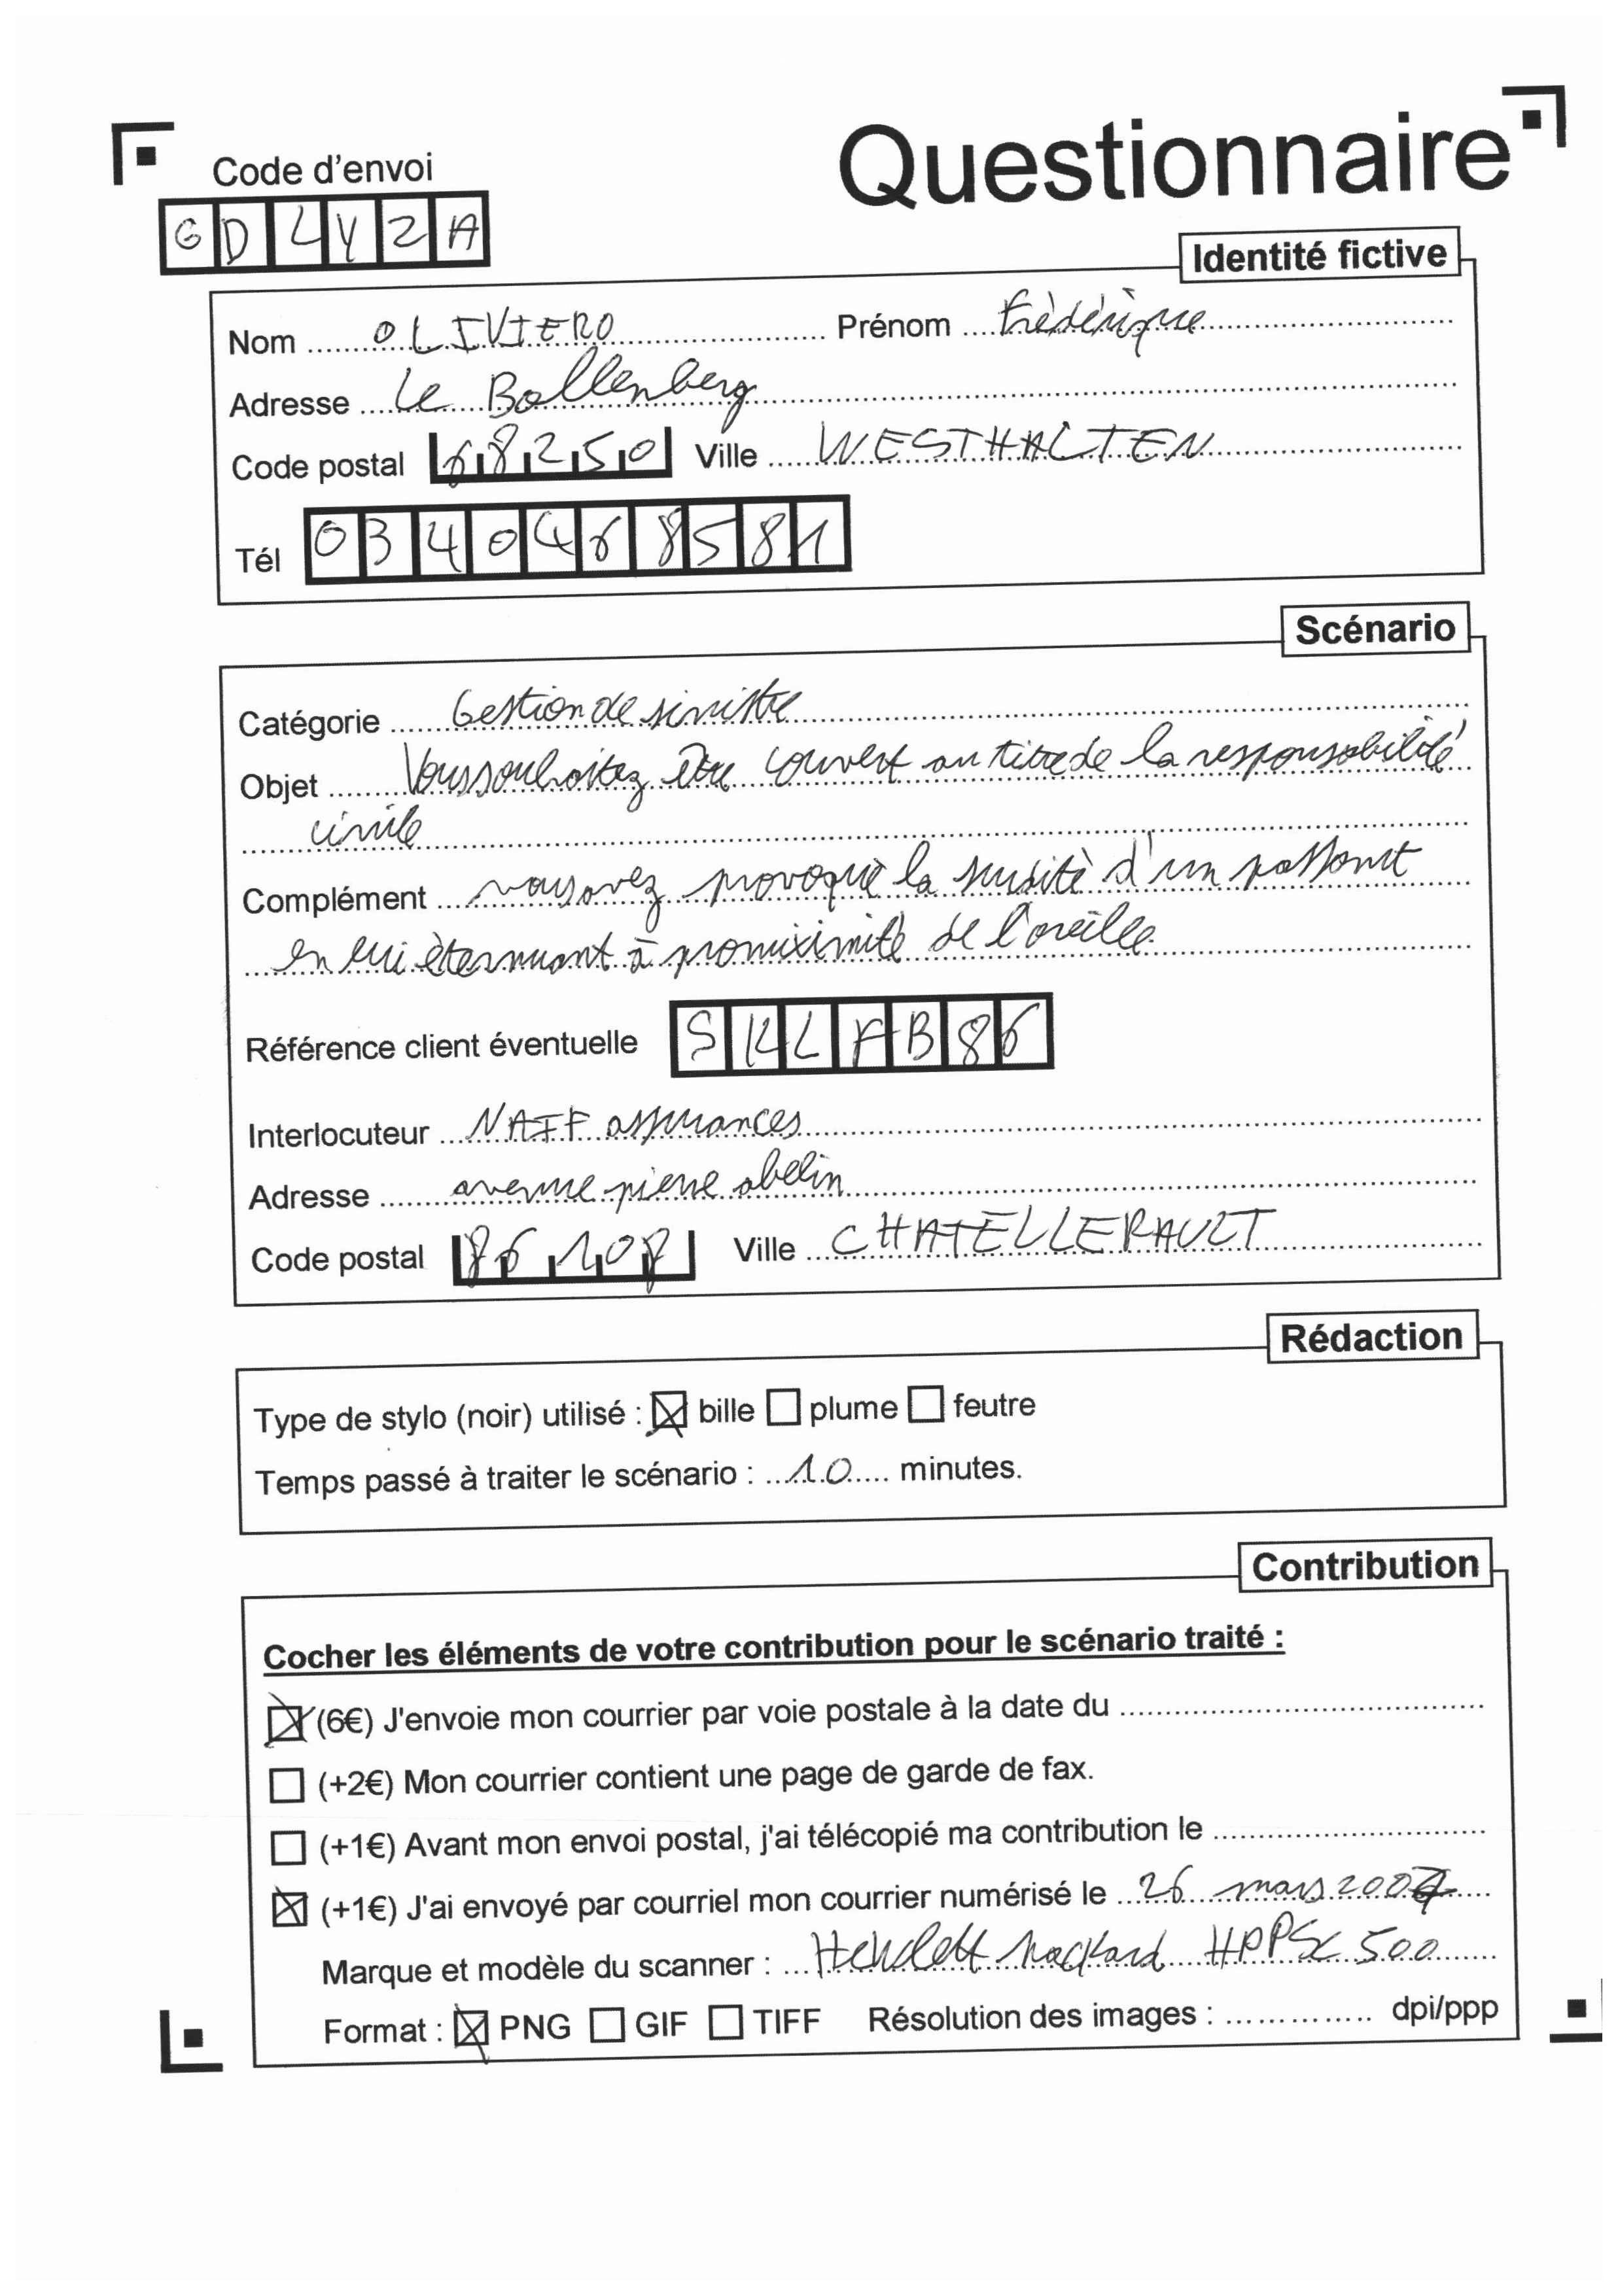 Questionnaire
Code d'envoi
GDLY2A
Identité fictive
Nom OLIVIERO Prénom Frédérique
Adresse Le Bollenberg
Code postal 68250 Ville WESTHALTEN
Tél 0340468581
Scénario
Catégorie Gestion de sinistre
Objet Vous souhaitez être couvert au titre de la responsabilité
civile
Complément vous avez provoqué la surdité d'un passant
en lui éternuant à promiximité de l'oreille.
Référence client éventuelle SKLFB86
Interlocuteur NAIF assurances
Adresse avenue pierre abelin
Code postal 86107 Ville CHATELLERAULT
Rédaction
Type de stylo (noir) utilisé : bille plume feutre
Temps passé à traiter le scénario : 10 minutes.
Contribution
Cocher les éléments de votre contribution pour le scénario traité :
(6€) J'envoie mon courrier par voie postale à la date du
(+2€) Mon courrier contient une page de garde de fax.
(+1€) Avant mon envoi postal, j'ai télécopié ma contribution le
(+1€) J'ai envoyé par courriel mon courrier numérisé le 26 mars 2007
Marque et modèle du scanner : Hewlett packard HPPSC 500
Format : PNG GIF TIFF Résolution des images : dpi/ppp